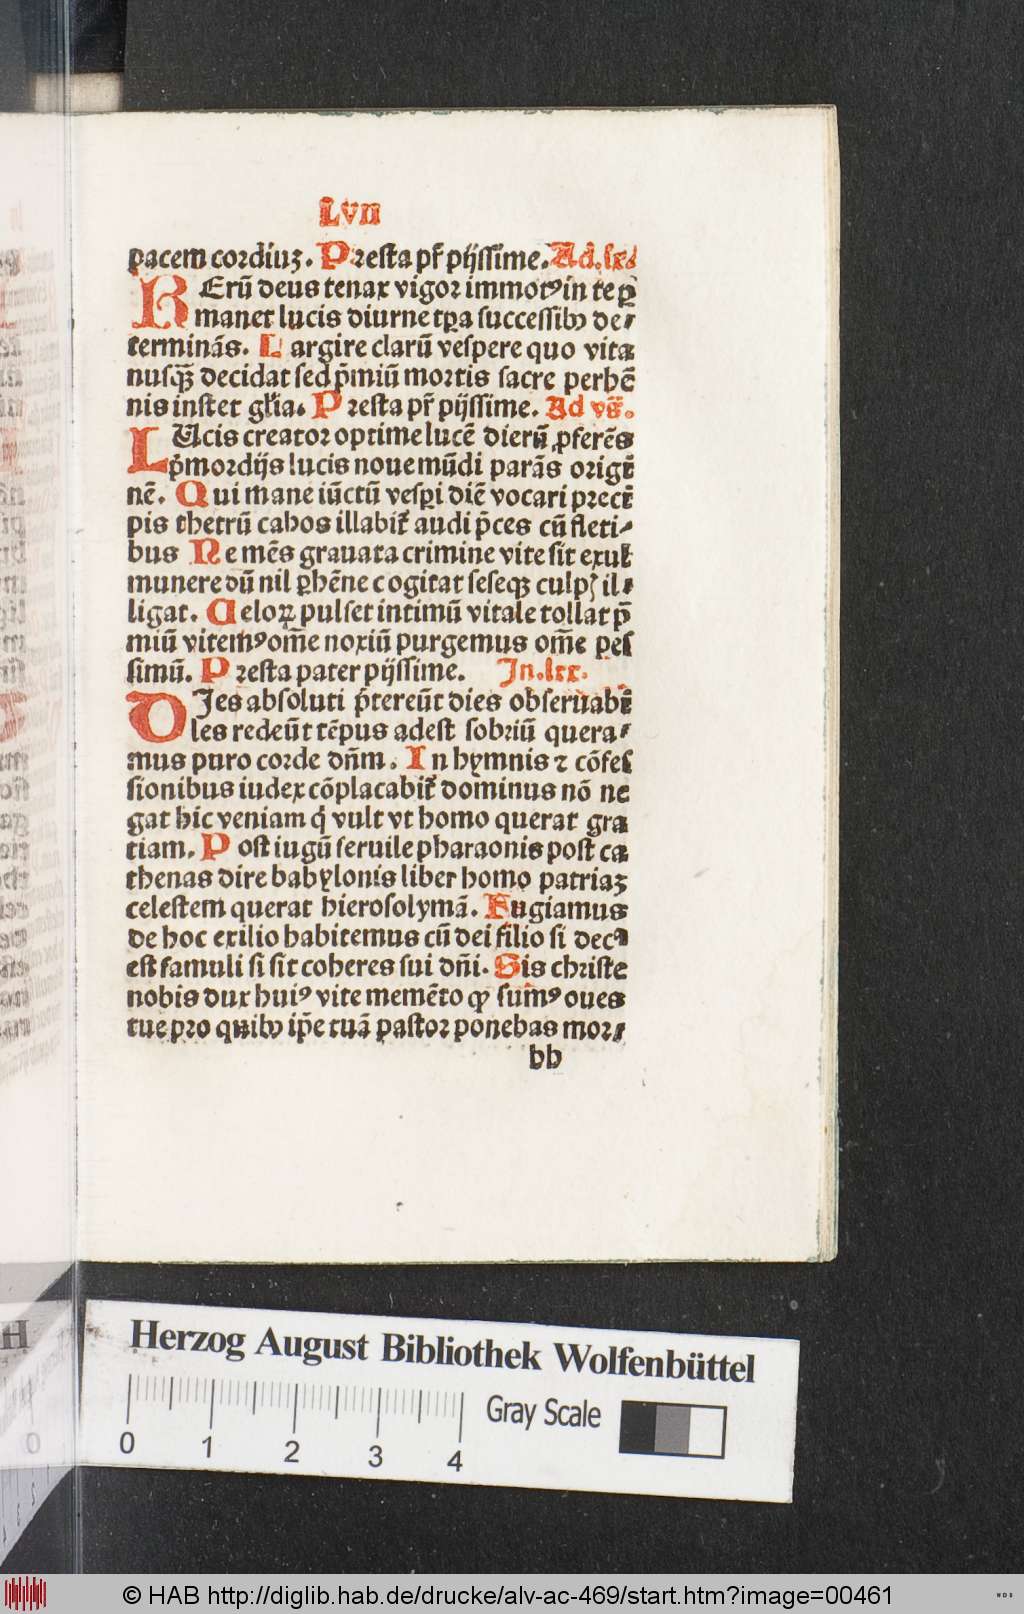 Lvii
pacem cordiuꝫ. Presta pr̄ pijssime. Ad .ix.
REru̅ deus tenax vigor immotꝰ in te ꝑ
manet lucis diurne tꝑa successibꝰ de⸗
termina̅s. Largire claru̅ vespere quo vita
nusqꝫ̅ decidat sed p̅miu̅ mortis sacre perhe̅
nis instet gl̅ia. Presta pr̄ pijssime. Ad vs̅.
LUcis creator optime luce̅ dieru̅ ꝓfere̅s
p̅mordijs lucis noue mu̅di para̅s origi̅
ne̅. Qui mane iu̅ctu̅ vesꝑi die̅ vocari preci̅
pis thetru̅ cahos illabit᷑ audi p̅ces cu̅ fleti⸗
bus Ne me̅s grauata crimine vite sit exul
munere du̅ nil ꝑhe̅ne cogitat seseqꝫ culpꝭ il⸗
ligat. Celoꝝ pulset intimu̅ vitale tollat p̅
miu̅ vitemꝰ om̅e noxiu̅ purgemus om̅e pes
simu̅. Presta pater pijssime. In .lxx.
DIes absoluti p̅tereu̅t dies obseruabi̅
les redeu̅t te̅pus adest sobriu̅ quera⸗
mus puro corde dn̅m. In hymnis ⁊ co̅fes
sionibus iudex co̅placabit᷑ dominus no̅ ne
gat hic veniam q̇ vult vt homo querat gra
tiam. Post iugu̅ seruile pharaonis post ca
thenas dire babylonis liber homo patriaꝫ
celestem querat hierosolyma̅. Fugiamus
de hoc exilio habitemus cu̅ dei filio si decꝰ
est famuli si sit coheres sui dn̅i. Sis christe
nobis dux huiꝰ vite meme̅to ꝙ sumꝰ oues
tue pro quibꝰ ip̅e tua̅ pastor ponebas mor⸗
bb
Herzog August Bibliothek Wolfenbüttel
0 1 2 3 4
Gray Scale
© HAB http://diglib.hab.de/drucke/alv-ac-469/start.htm?image=00461